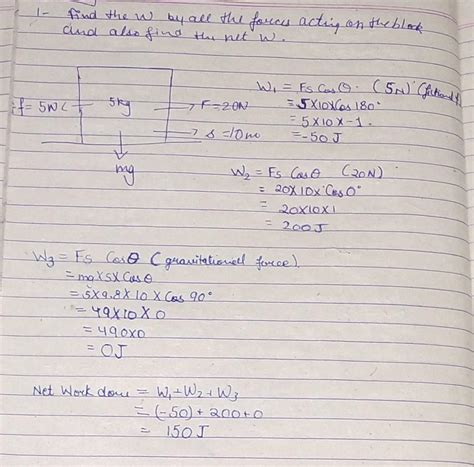 1- find the W by all the forces acting on the block
and also find the net W.
W₁ = Fs Cosθ. (5N) (frictional f)
= 5×10×Cos 180°
= 5×10×-1.
= -50J
f = 5N
5kg
F = 20N
s = 10m
mg
W₂ = Fs Cosθ (20N)
= 20×10×Cos0°
= 20×10×1
= 200J
W₃ = Fs Cosθ (gravitationell force).
= mg×s×Cosθ
= 5×9.8×10×Cos 90°
= 49×10×0
= 490×0
= 0J
Net Work done = W₁+W₂+W₃
= (-50)+200+0
= 150J